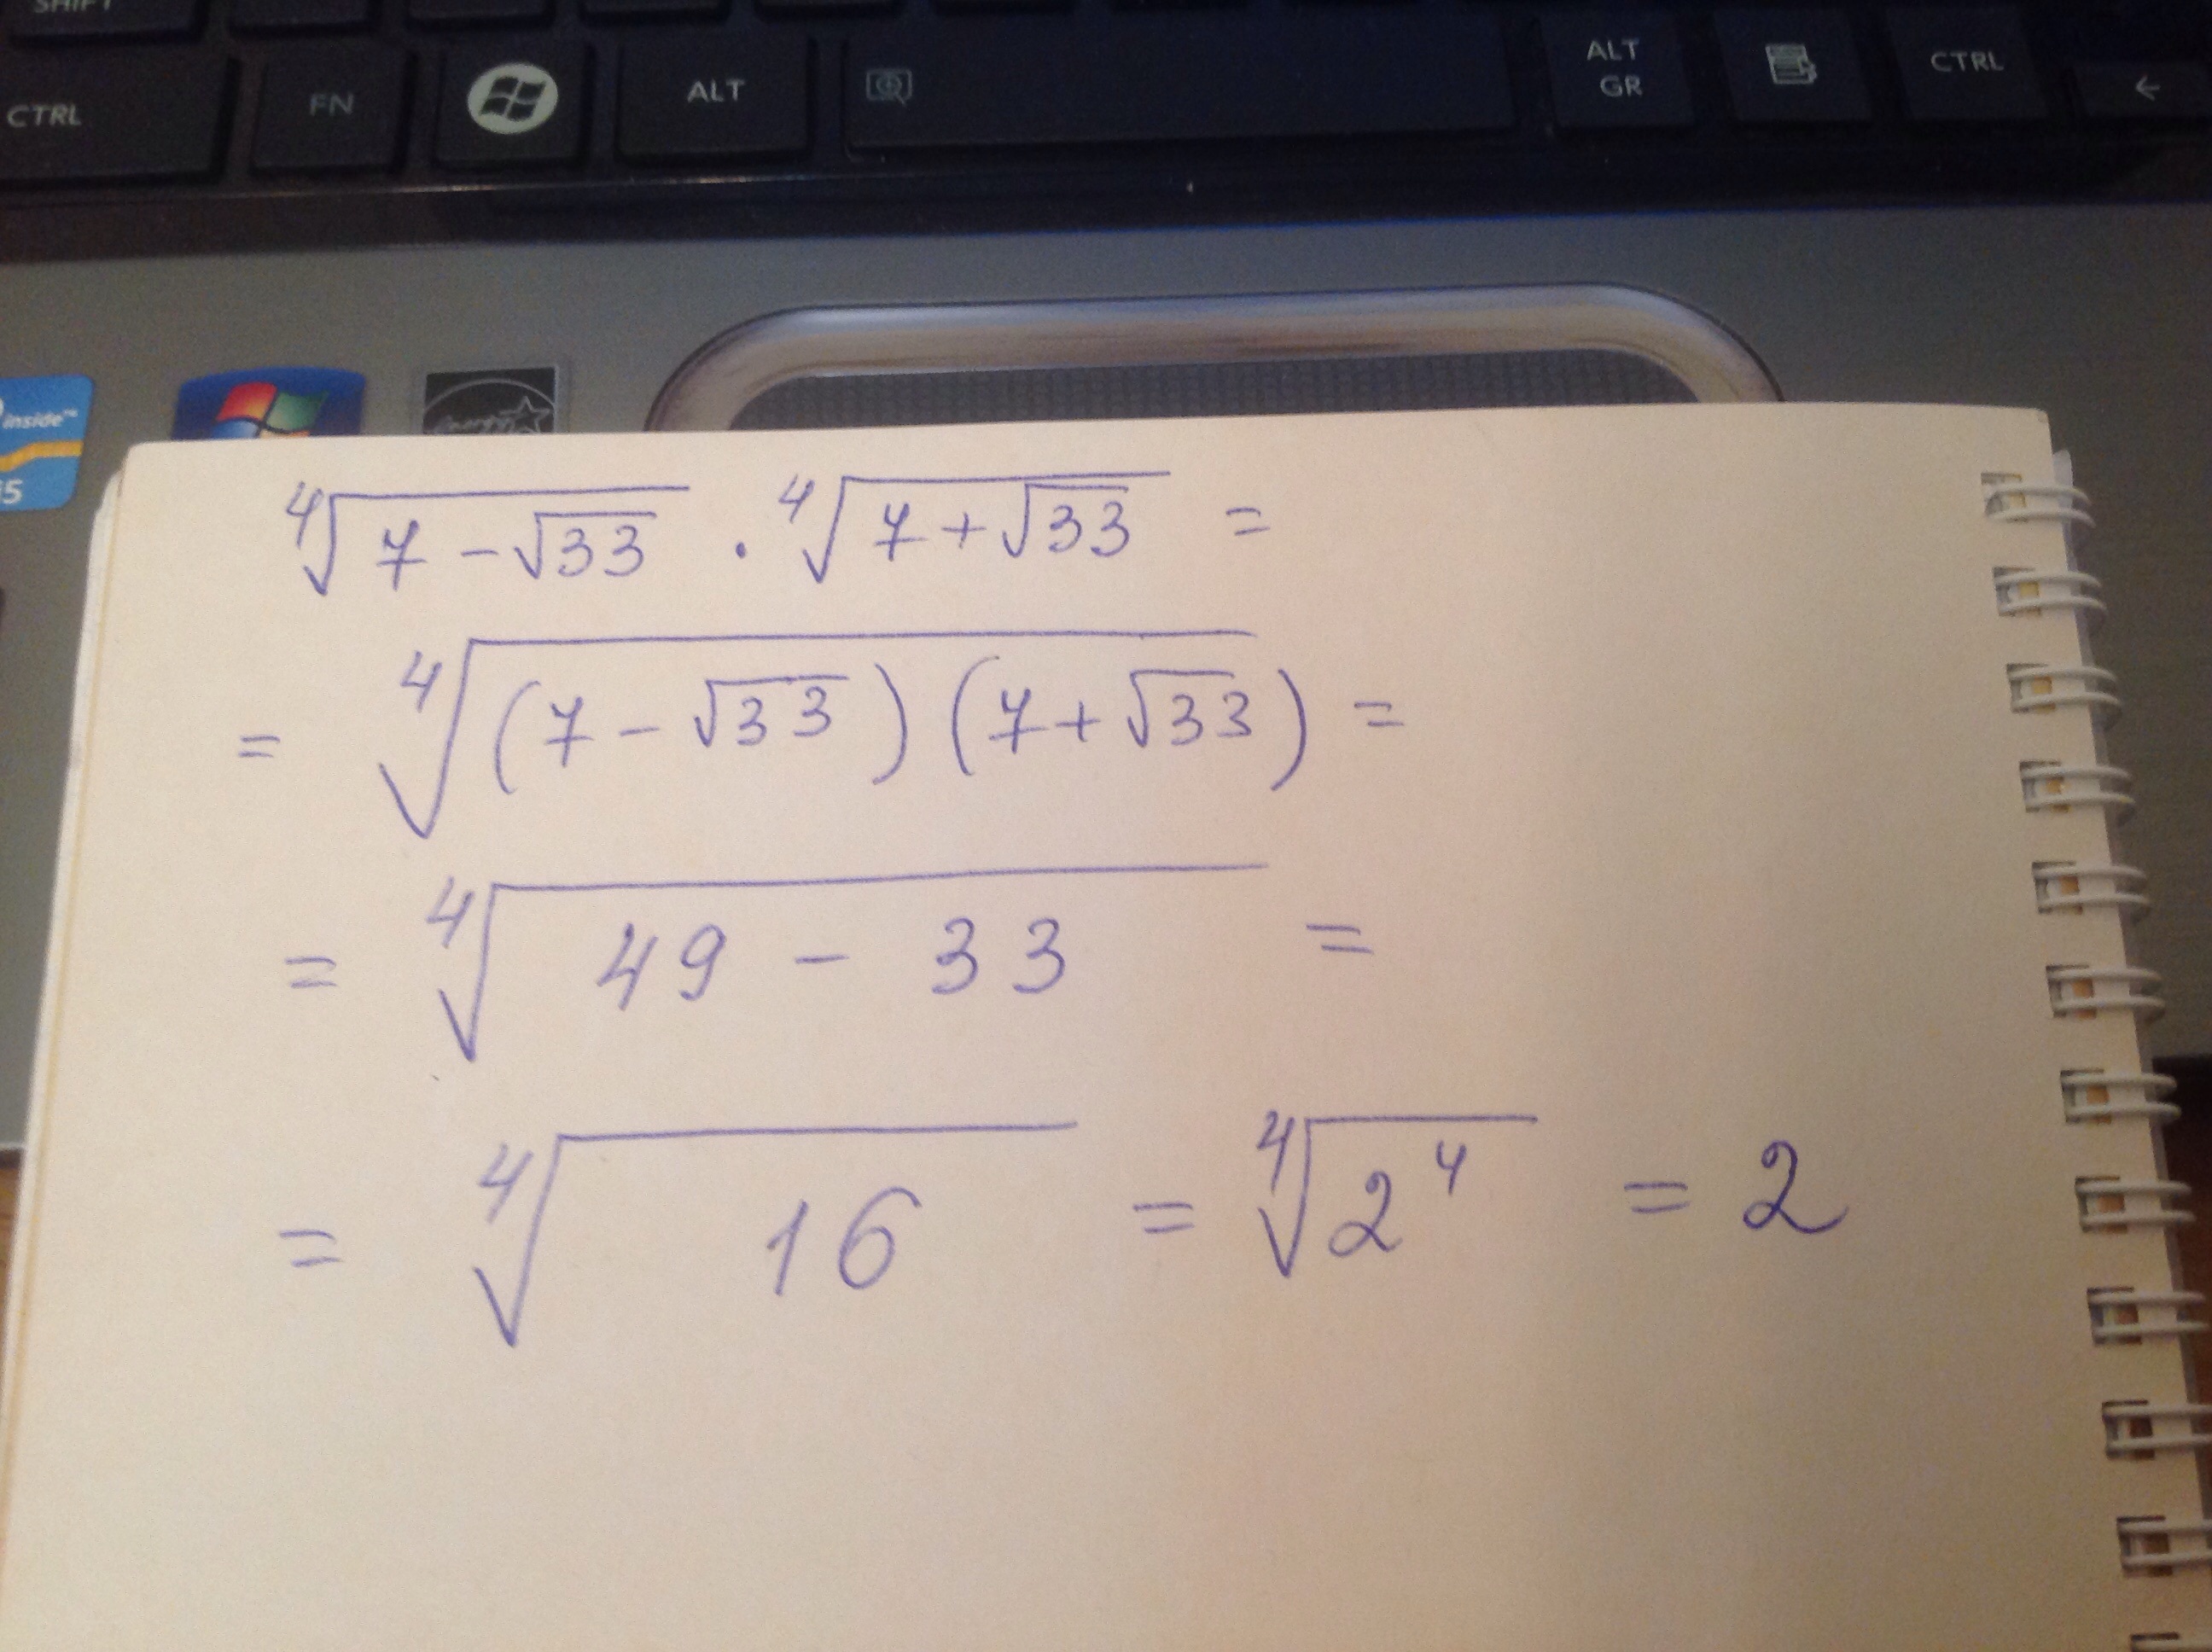 SHIFT
CTRL FN ALT ALT GR CTRL ←
inside™
i5
energy
⁴√(7 - √33) · ⁴√(7 + √33) =
= ⁴√((7 - √33) (7 + √33)) =
= ⁴√(49 - 33) =
= ⁴√16 = ⁴√(2⁴) = 2